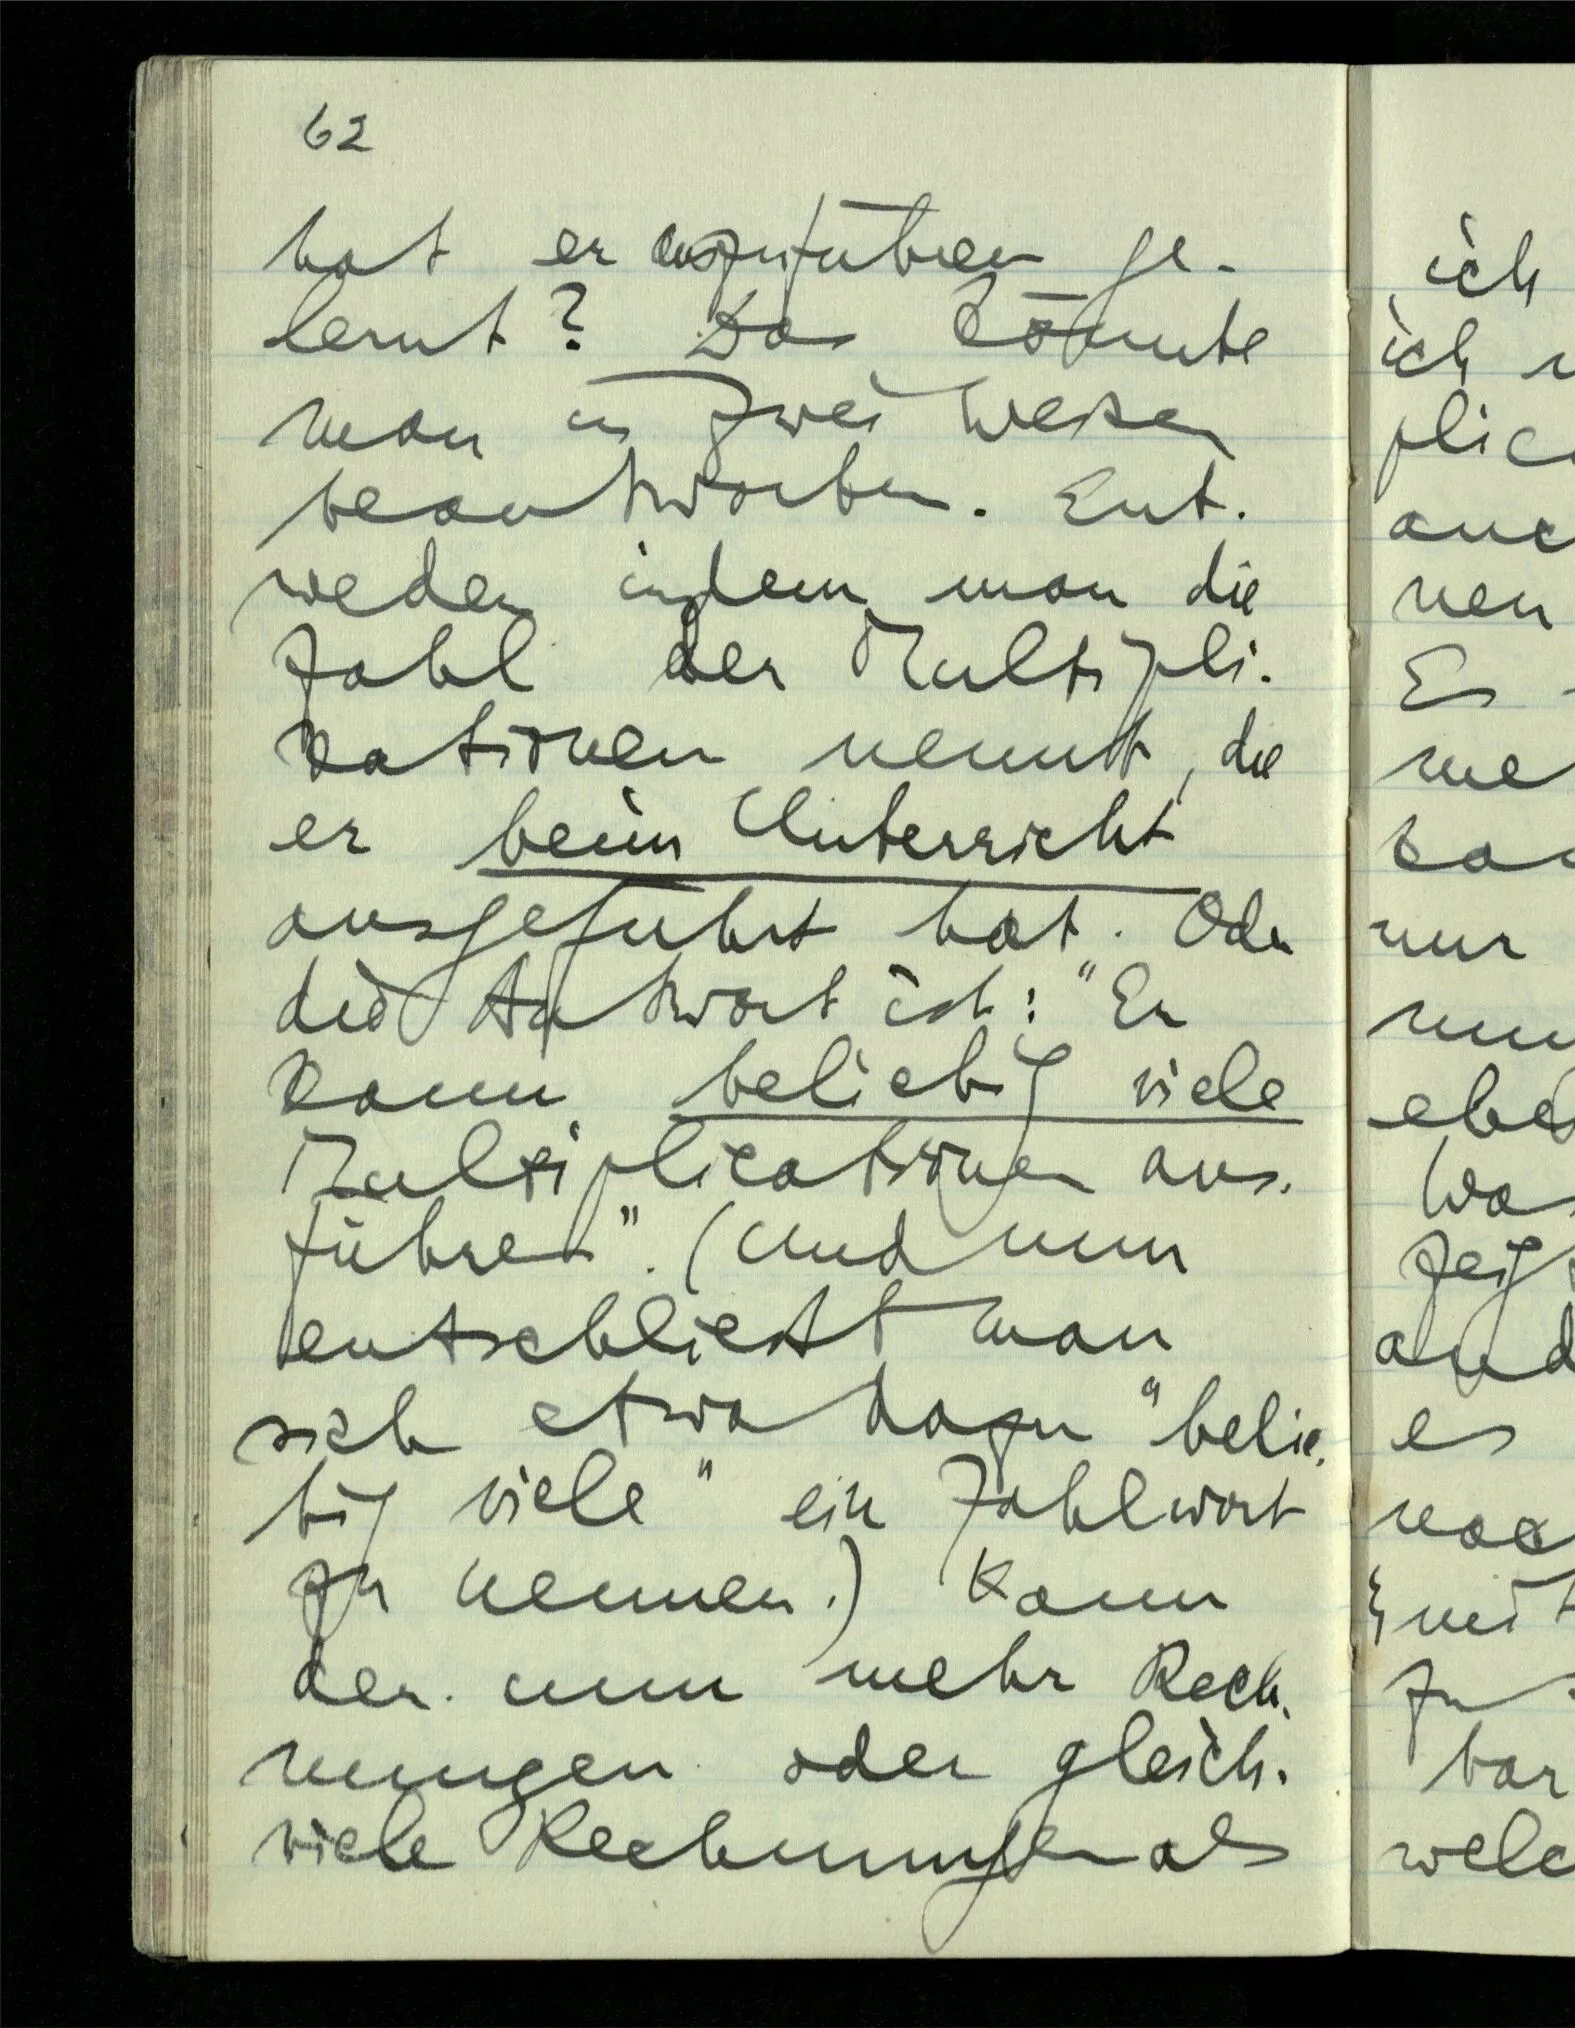 62
hat er auszuführen ge-
lernt? Das könnte
man in zwei Weisen
beantworten. Ent-
weder indem man die
Zahl der Multipli-
kationen nennt, die
er beim Unterricht
ausgeführt hat. Oder
die Antwort ist: "Er
kann beliebig viele
Multiplicationen aus-
führen". (Und nun
entschließt man
sich etwa dazu "belie-
big viele" ein Zahlwort
zu nennen.) Kann
der nun mehr Rech-
nungen oder gleich-
viele Rechnungen als
ich
ich
plic
auc
nen
Es
me
ka
nur
nun
ebe
Was
zeig
and
es
noc
mit
zu
bar
welc